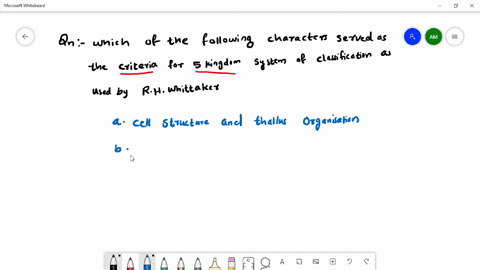 Microsoft Whiteboard
AM
Qn:- which of the following characters served as
the criteria for 5 kingdom system of classification as
used by R.H. Whittaker
a. cell structure and thallus Organisation
b.